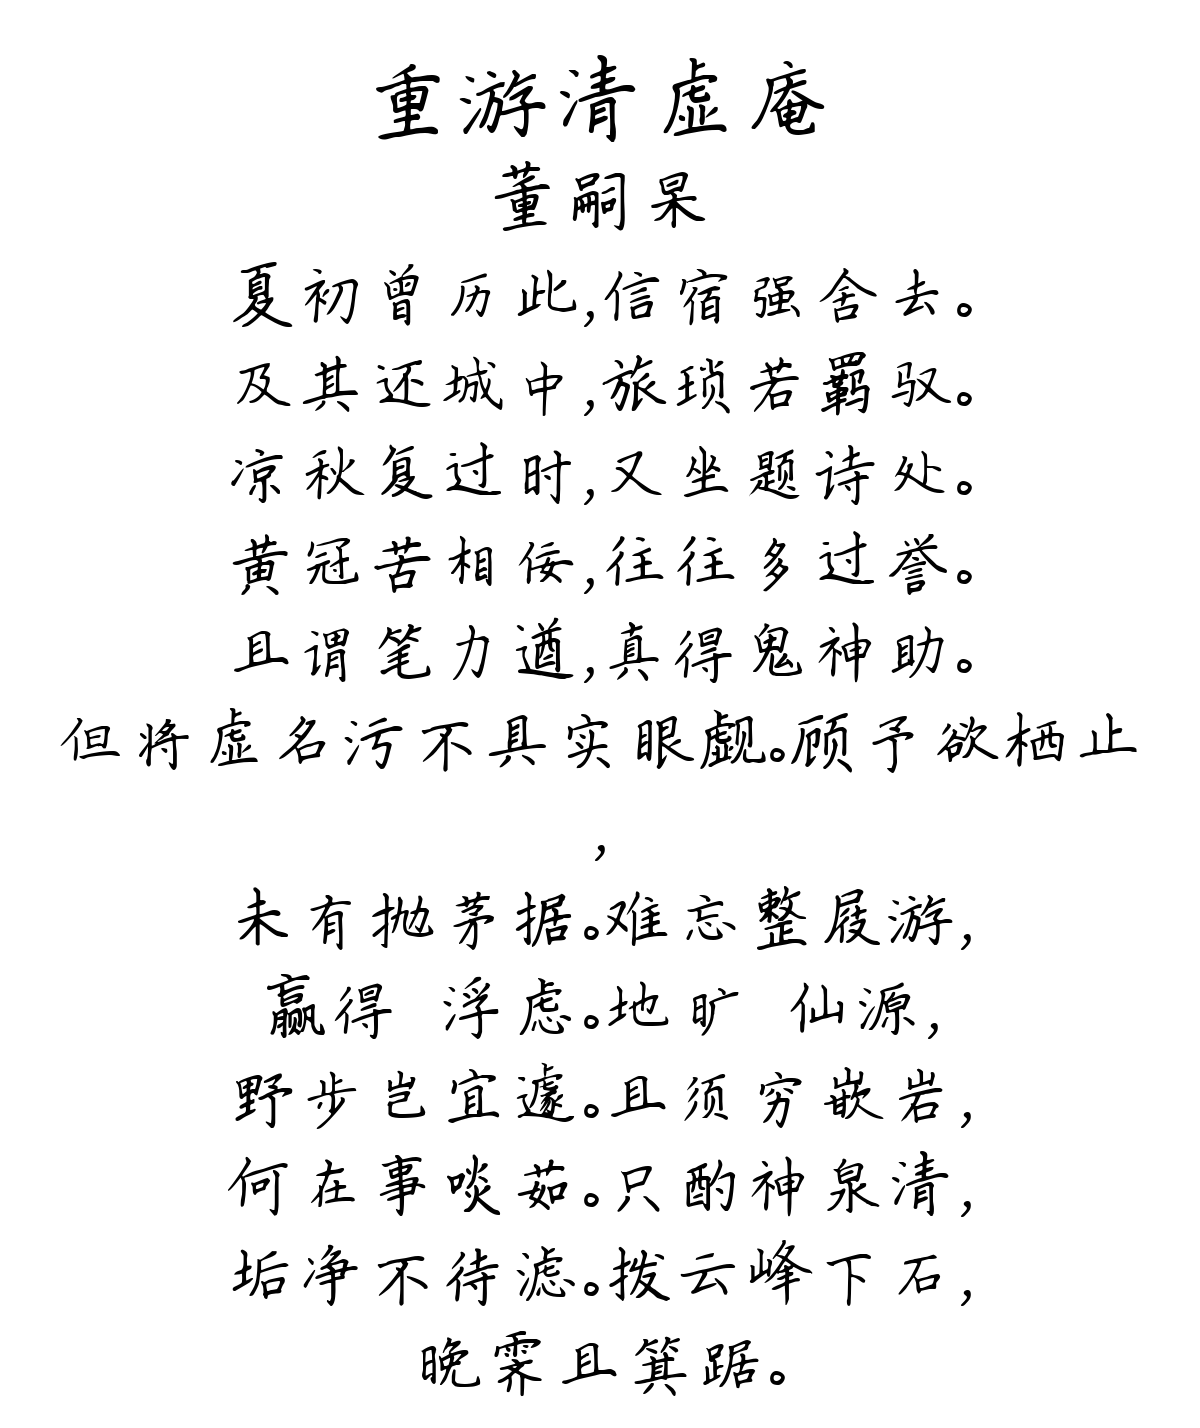 重游清虚庵
董嗣杲
夏初曾历此,信宿强舍去。
及其还城中,旅琐若羁驭。
凉秋复过时,又坐题诗处。
黄冠苦相佞,往往多过誉。
且谓笔力遒,真得鬼神助。
但将虚名污不具实眼觑。顾予欲栖止
,
未有抛茅据。难忘整屐游,
赢得 浮虑。地旷 仙源,
野步岂宜遽。且须穷嵌岩,
何在事啖茹。只酌神泉清,
垢净不待滤。拨云峰下石,
晚霁且箕踞。